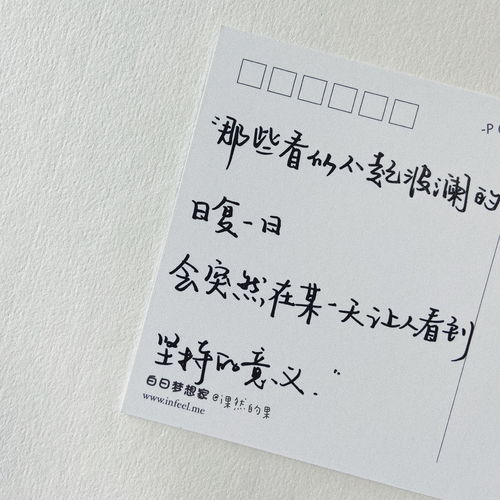 -P
“那些看似不起波澜的
日复一日
会突然在某一天让人看到
坚持的意义.”
白日梦想家 @课然的果
www.infeel.me